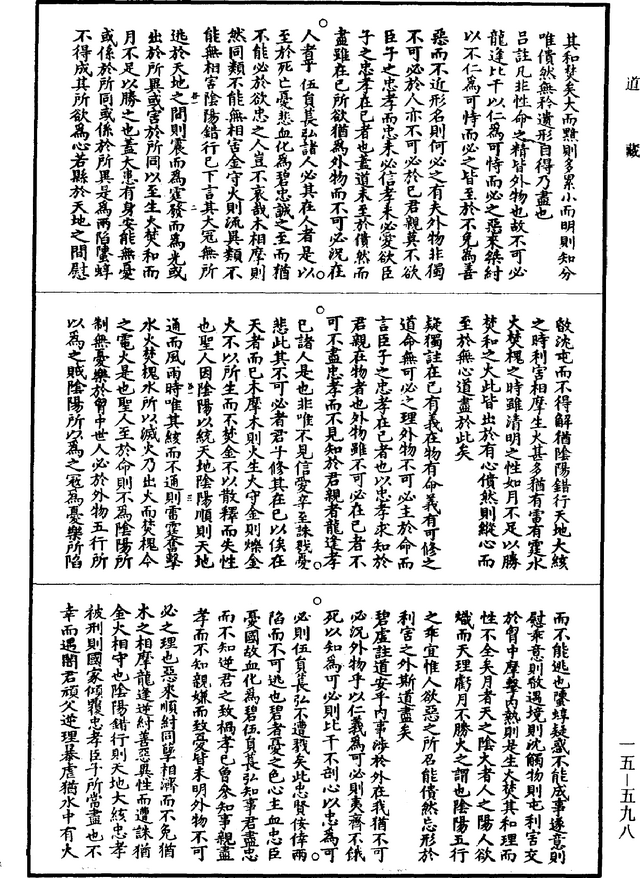 道藏
其和焚矣大而黯則多累小而明則知分
唯僓然無矜遺形自得乃盡也
呂註凡非性命之精皆外物也故不可必
龍逢比干以仁為可恃而必之惡來桀紂
以不仁為可恃而必之皆至於不免為善
惡而不近形名則何必之有夫外物非獨
不可必於人亦不可必於己君親莫不欲
臣子之忠孝而忠未必信孝未必愛欲臣
子之忠孝在己者也蓋道未至於僓然而
盡雖在己所欲猶為外物而不可必況在
人者乎伍員萇弘諸人必其在人者是以
至於死亡憂悲血化為碧忠誠之至而猶
不能必於欲忠之人豈不哀哉木相摩則
然同類不能無相害金守火則流異類不
能無相害陰陽錯行已下言其大冦無所
逃於天地之間則震而為霆發而為光或
出於所異或害於所同以至生火焚和而
月不足以勝之也蓋大患有身安能無憂
或係於所同或係於所異是為兩陷螴蜳
不得成其所欲為心若縣於天地之間慰
敃沈屯而不得解猶陰陽錯行天地大絃
之時利害相摩生火甚多猶有雷有霆水
火焚槐之時雖清明之性如月不足以勝
焚和之火此皆出於有心僓然則縱心而
至於無心道盡於此矣
疑獨註在己有義在物有命義有可修之
道命無可必之理外物不可必主於命而
言臣子之忠孝在己者也以忠孝求知於
君親在物者也外物雖不可必在己者不
可不盡忠孝而不見知於君親者龍逢孝
已諸人是也非唯不見信愛卒至誅戮憂
悲此其不可必者君子修其在己以俟在
天者而已木摩木則火生火守金則爍金
火不以所生而不焚金不以散釋而失性
也聖人因陰陽以統天地陰陽順則天地
通而風雨時唯其絃而不通則雷霆奮擊
水火焚槐水所以滅火乃出火而焚槐今
之電火是也聖人至於命則不為陰陽所
制無憂樂於胷中世人必於外物五行所
以為之賊陰陽所以為之冦為憂樂所陷
而不能逃也螴蜳疑惑不能成事遂意則
慰乖意則敃遇境則沈觸物則屯利害交
於胷中摩擊內熱則是生火焚其和理而
性不全矣月者天之陰火者人之陽人欲
熾而天理虧月不勝火之謂也陰陽五行
之乖宜惟人欲惡之所名能僓然忘形於
利害之外斯道盡矣
碧虛註道安乎內事涉於外在我猶不可
必況外物乎以仁義為可必則夷齊不餓
死以知為可必則比干不剖心以忠為可
必則伍員萇弘不遭戮矣此忠賢佞倖兩
陷而不可逃也碧者憂之色心主血忠臣
憂國故血化為碧伍員萇弘知事君盡忠
而不知逆君之致禍孝已曾參知事親盡
孝而不知親嫌而致憂皆未明外物不可
必之理也惡來順紂同孽相濟而不免猶
木之相摩龍逢逆紂善惡異性而遭誅猶
金火相守也陰陽錯行則天地大絃忠孝
被刑則國家傾覆忠孝臣子所當盡也不
幸而遇闇君頑父逆理暴虐猶水中有火
一五—五九八